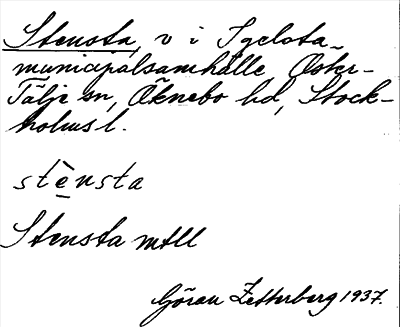 Stensta, v i Igelsta-
municipalsamhälle Öster-
Tälje sn, Öknebo hd, Stock-
holms l.
stènsta
Stensta mtll
Göran Zetterberg 1937.